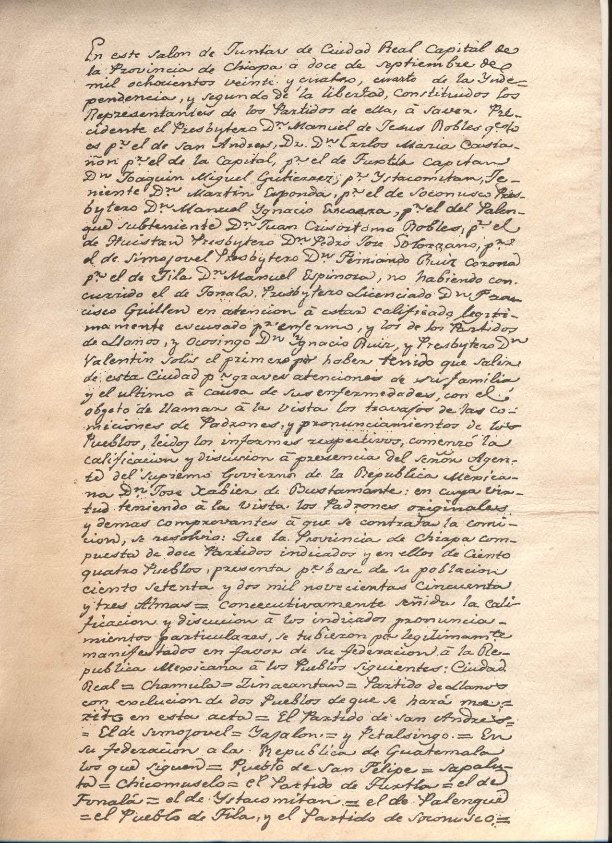 En este salon de Juntas de Ciudad Real Capital de
la Provincia de Chiapa á doce de septiembre de
mil ochocientos veinti y cuatro, cuarto de la Ynde-
pendencia, y segundo de la libertad, constituidos los
Representantes de los Partidos de ella, á saver Pre-
cidente el Presbytero Dn Manuel de Jesus Robles qe lo
es pr el de San Andres, Dr. Dn Carlos Maria Casta-
ñon pr el de la Capital, pr el de Tuxtla capitan
Dn Joaquin Miguel Gutierrez, pr Ystacomitan, Te-
niente Dn Martin Esponda, pr el de Soconusco Pres-
bytero Dn Manuel Ygnacio Escarra, pr el del Palen-
que subteniente Dn Juan Crisostomo Robles, pr el
de Huistan Presbytero Dn Pedro Jose Solorzano, pr
el de Simojovel Presbytero Dn Fernando Ruiz Corona
pr el de Tila Dn Manuel Espinora, no habiendo con-
currido el de Tonala, Presbytero Licenciado Dn Fran-
cisco Guillen en atencion á estar calificado legiti-
mamente escusado pr enfermo, y los de los Partidos
de Llanos, y Ocosingo Dn Ygnacio Ruiz, y Presbytero Dn
Valentin Solis el primero pr haber tenido que salir
de esta Ciudad pr graves atenciones de su familia
y el ultimo á causa de sus enfermedades, con el
objeto de llamar á la vista los travajos de las co-
miciones de Padrones, y pronunciamientos de los
Pueblos, leidos los informes respectivos, comenzó la
calificacion y discucion á presencia del señor Agen-
te del Supremo Govierno de la Republica Mexica-
na Dn Jose Xabier de Bustamante: en cuya vir-
tud teniendo á la vista los Padrones originales
y demas comprovantes á que se contraia la comi-
cion, se resolvió: Que la Provincia de Chiapa com-
puesta de doce Partidos indicados y en ellos de Ciento
quatro Pueblos, presenta pr base de su poblacion
ciento setenta y dos mil novecientas Cincuenta
y tres Almas = Consecutivamente señida la cali-
ficacion y discucion á los indicados pronuncia-
mientos particulares, se tubieron pr legitimamte
manifestados en favor de su federacion á la Re-
publica Mexicana á los Pueblos siguientes: Ciudad
Real = Chamula = Zinacantan = Partido de Llanos
con exclucion de dos Pueblos de que se hará me =
rito en esta acta = El Partido de San Andres =
= El de Simojovel = Yajalon = y Petalsingo. = En
su federacion a la Republica de Guatemala
los que siguen = Pueblo de San Felipe = Sapalu-
ta = Chicomuselo = el Partido de Tuxtla = el de
Tonalá = el de Ystacomitan = el de Palenque
= el Pueblo de Tila, y el Partido de Soconusco =